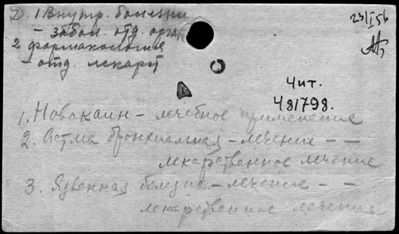 Д. 1 Внутр. болезни
– забол. отд. орга
2 фармакология
отд. лекарт
23/I 56
Чит.
481798.
1. Новокаин – лечебное применение
2. Астма бронхиальная – лечение – –
лекарственное лечение
3. Язвенная болезнь – лечение – –
лекарственное лечение